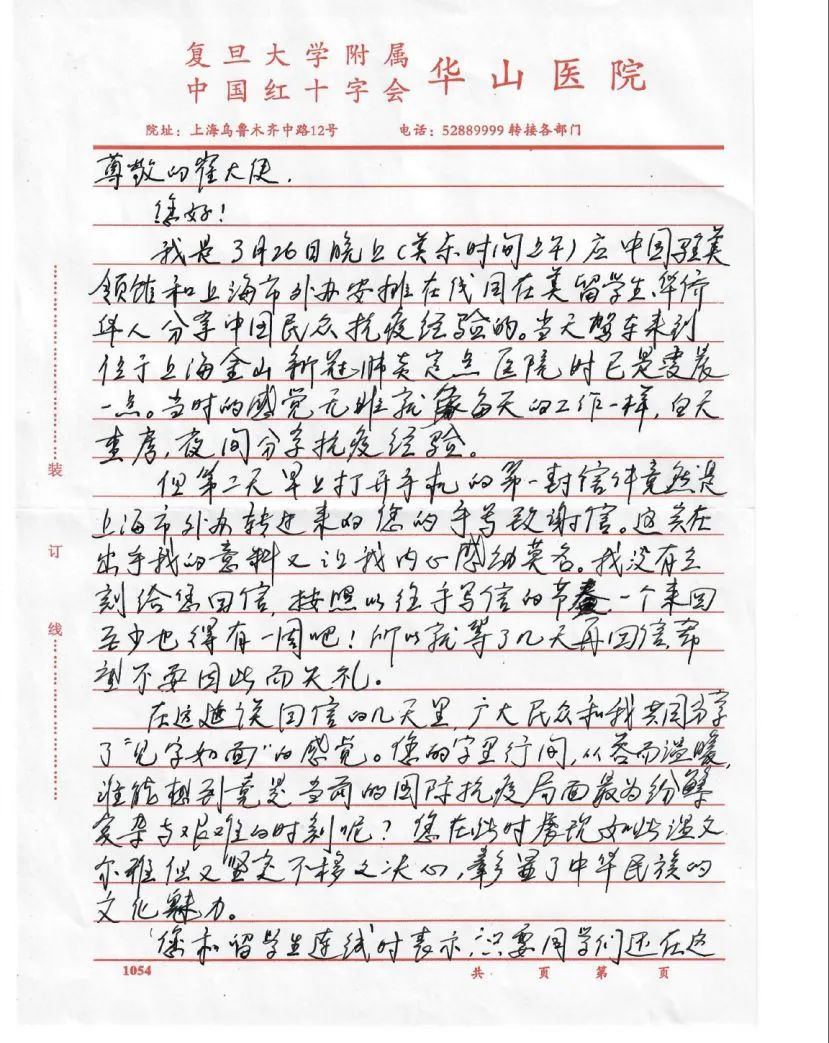 复旦大学附属
中国红十字会 华山医院
院址：上海乌鲁木齐中路12号 电话：52889999 转接各部门
尊敬的崔大使.
您好！
我是3月26日晚上(美东时间上午)应中国驻美
领馆和上海市外办安排在线同在美留学生、华侨
华人分享中国民众抗疫经验的。当天驾车来到
位于上海金山新冠肺炎定点医院时已是凌晨
一点。当时的感觉无非就像每天的工作一样，白天
查房，夜间分享抗疫经验。
但第二天早上打开手机的第一封信件竟然是
上海市外办转过来的您的手写致谢信。这实在
出乎我的意料又让我内心感动莫名。我没有立
刻给您回信，按照以往手写信的节奏一个来回
至少也得有一周吧！所以就等了几天再回信，希
望不要因此而失礼。
在这延误回信的几天里，广大民众和我共同分享
了“见字如面”的感觉。您的字里行间，从容而温暖，
谁能想到竟是当前的国际抗疫局面最为纷繁
复杂与艰难的时刻呢？您在此时展现如此温文
尔雅但又坚定不移之决心，彰显了中华民族的
文化魅力。
您和留学生连线时表示，只要同学们还在这
装
订
线
1054 共 页 第 页